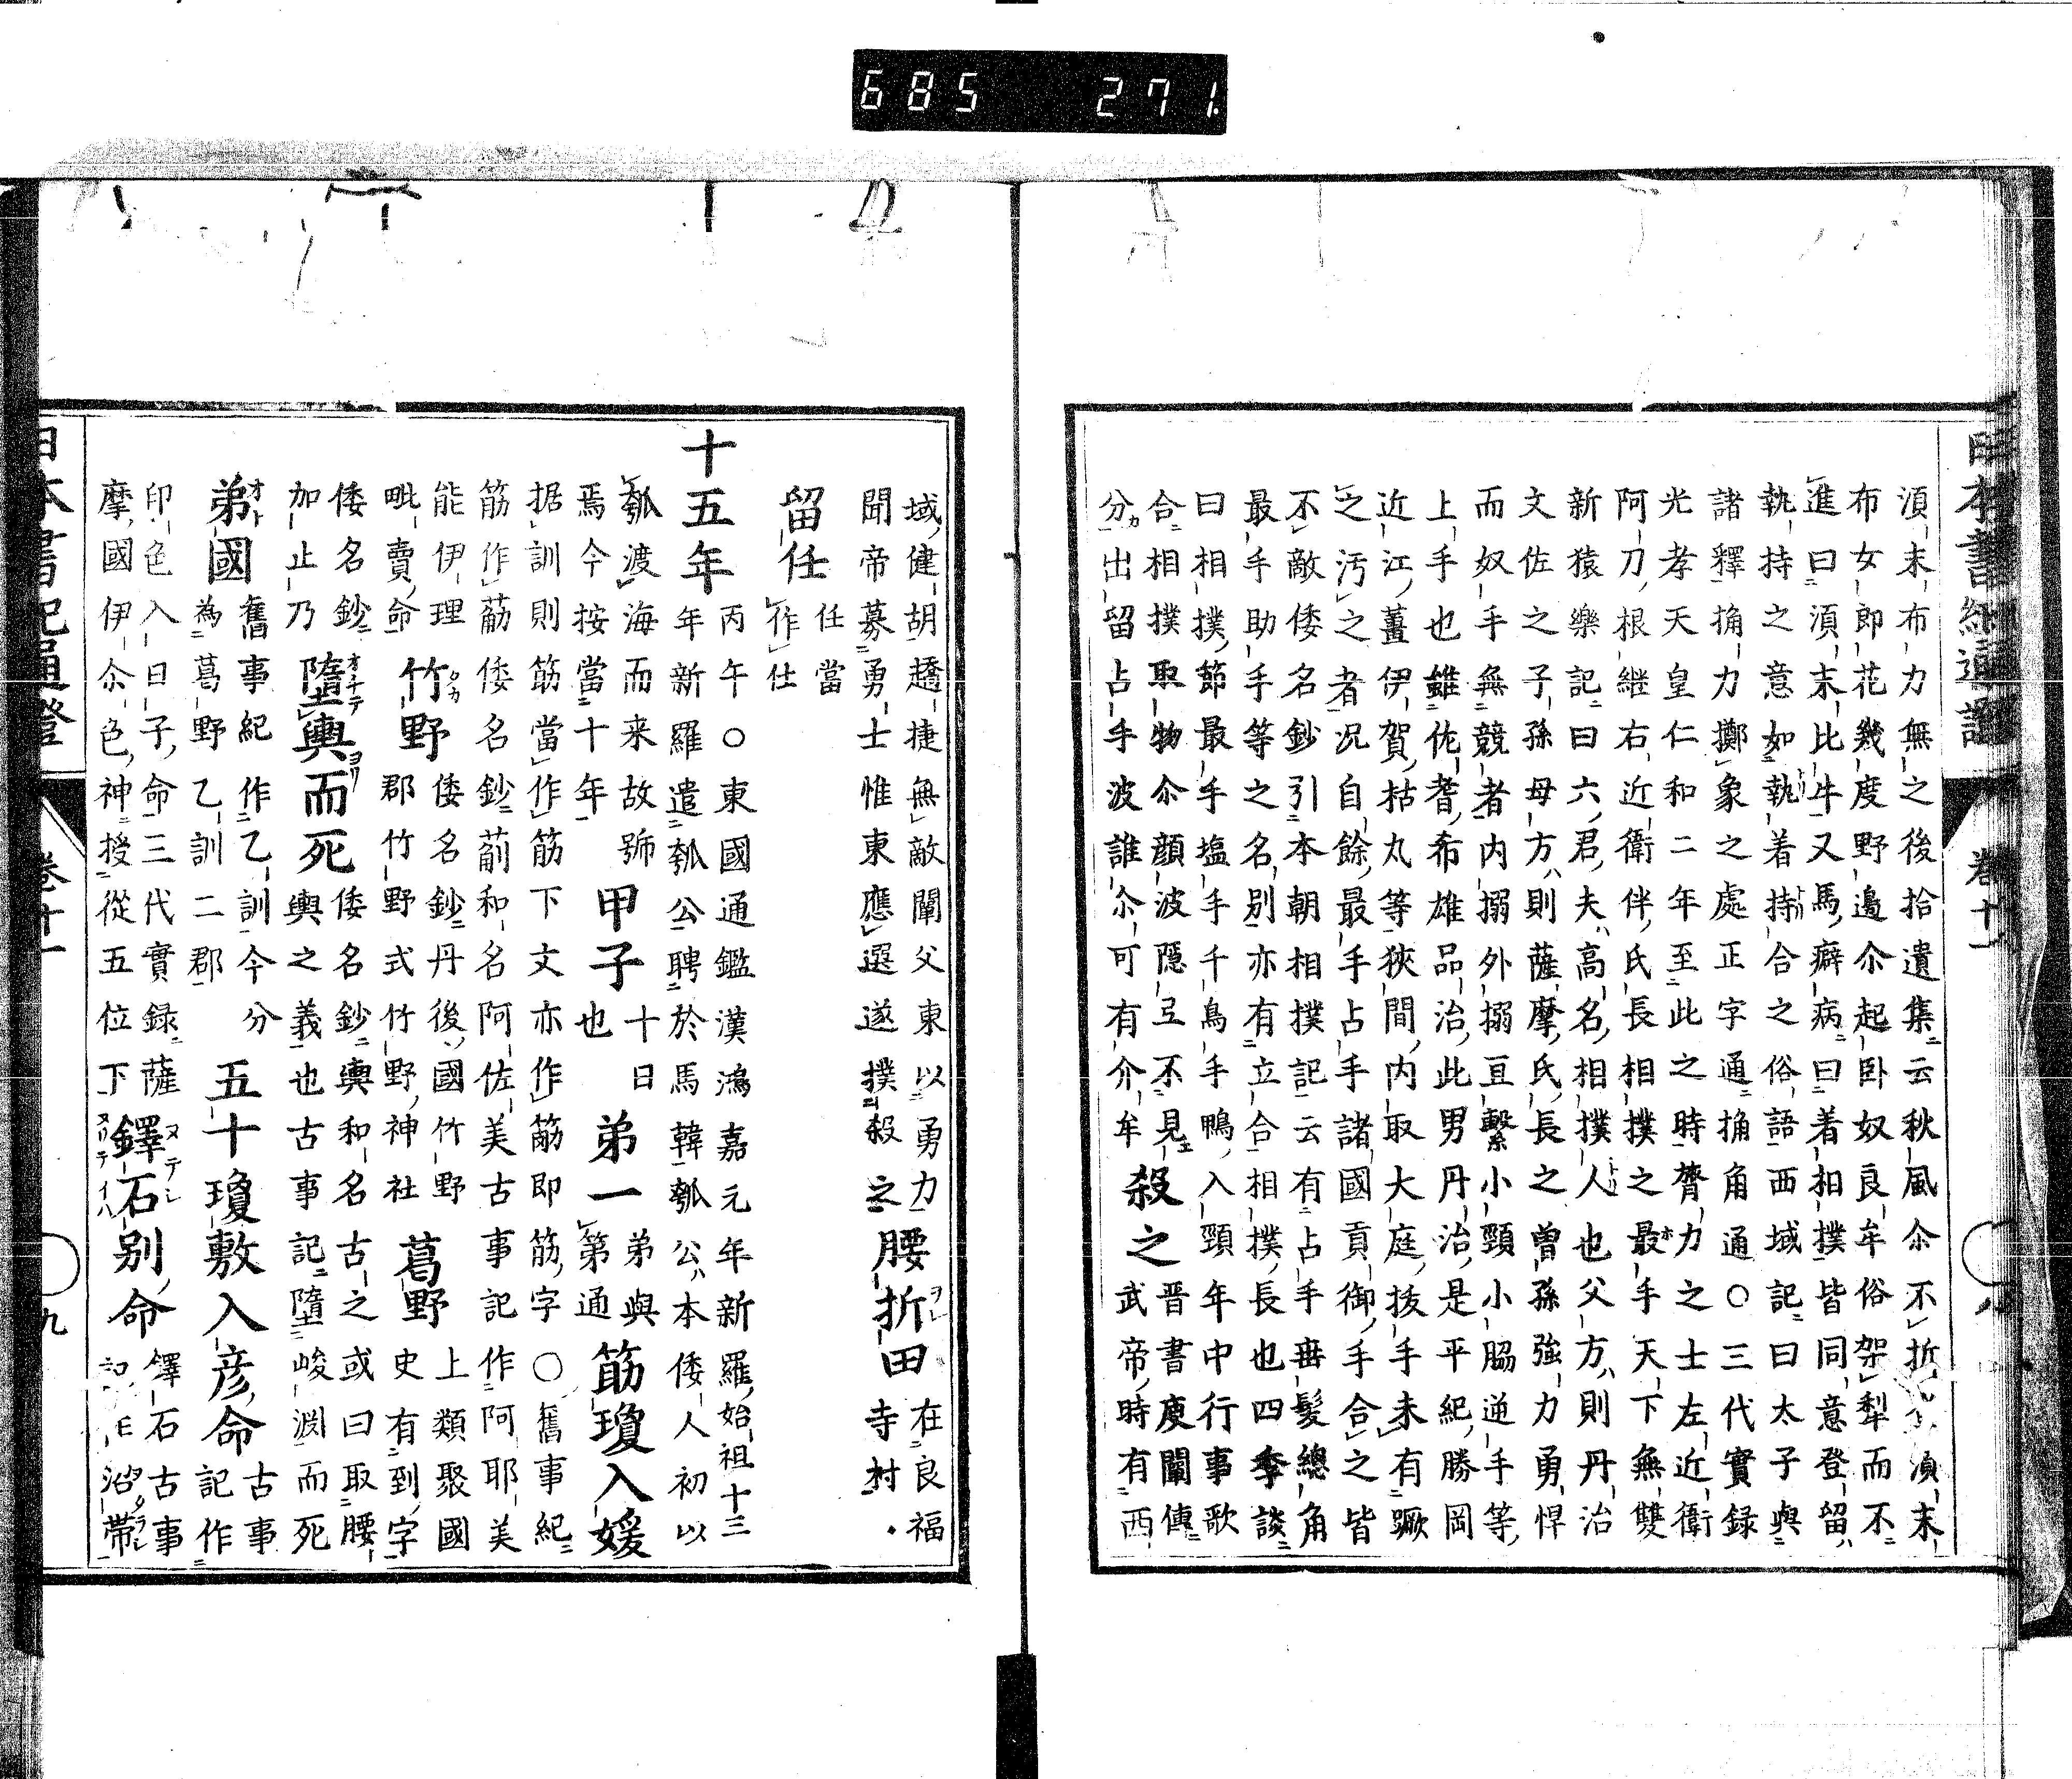 685 271
日本書紀通證 卷十一 八
湏末布力無之後拾遺集云秋風尒不折湏末
布女郎花幾度野邉尒起臥奴良牟俗架犁而不
進曰湏末比牛又馬癖病曰着相撲皆同意登留
執持之意如執着持合之俗語西域記曰太子與
諸釋捔力擲象之處正字通捔角通○三代實録
光孝天皇仁和二年至此之時膂力之士左近衛
阿刀根継右近衛伴氏長相撲之最手天下無雙
新猿樂記曰六君夫高名相撲人也父方則丹治
文佐之子孫母方則薩摩氏長之曽孫強力勇悍
而奴手無競者内搦外搦亘繋小頸小脇逆手等
上手也雖佗耆希雄品治此男丹治是平紀勝岡
近江薑伊賀枯丸等狹間内取大庭抜手未有蹶
之汚之者况自餘最手占手諸國貢御手合之皆
不敵倭名鈔引本朝相撲記云有占手垂髪總角
最手助手等之名別亦有立合相撲長也四季談
曰相撲節最手塩手千鳥手鴨入頸年中行事歌
合相撲取物尒顔波隠互不見
分出留占手波誰尒可有介牟
殺之
晋書庾闡傳
武帝時有西
域健胡趫捷無敵闡父東以勇力
聞帝募勇士惟東應選遂撲殺之
腰折田
在良福
寺村
留任
任當
作仕
十五年
丙午○東國通鑑漢鴻嘉元年新羅始祖十三
年新羅遣瓠公聘於馬韓瓠公本倭人初以
瓠渡海而来故號
焉今按當十年
甲子
十日
也
弟一
弟與
第通
筋瓊入媛
据訓則筋當作筋下文亦作筋即筋字○舊事紀
筋作葪倭名鈔葪和名阿佐美古事記作阿耶美
能伊理
毗賣命
竹野
倭名鈔丹後國竹野
郡竹野式竹野神社
葛野
上類聚國
史有到字
倭名鈔
加止乃
墮輿而死
倭名鈔輿和名古之或曰取腰
輿之義也古事記墮峻淵而死
弟國
舊事紀作乙訓今分
為葛野乙訓二郡
五十瓊敷入彦命
古事
記作
印色入日子命三代實録薩
摩國伊尒色神授從五位下
鐸石別命
鐸石古事
記作沼帶
日本書紀通證 卷十一 九